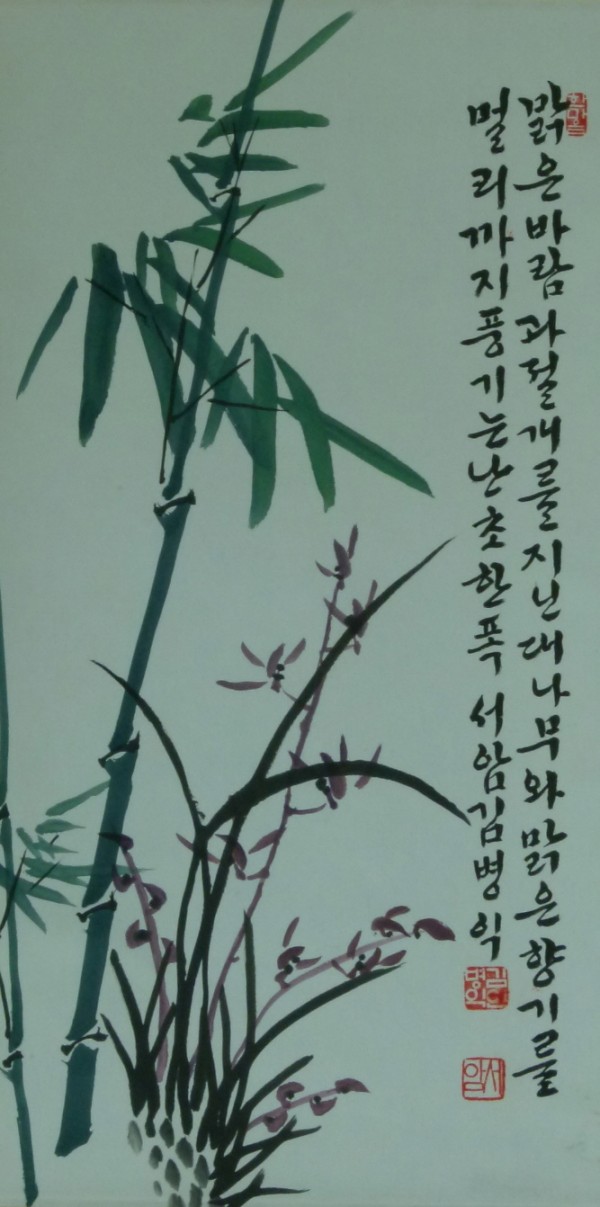 맑은바람과절개를지닌대나무와맑은향기를
멀리까지풍기는난초한폭 서암김병익
김병익
서암